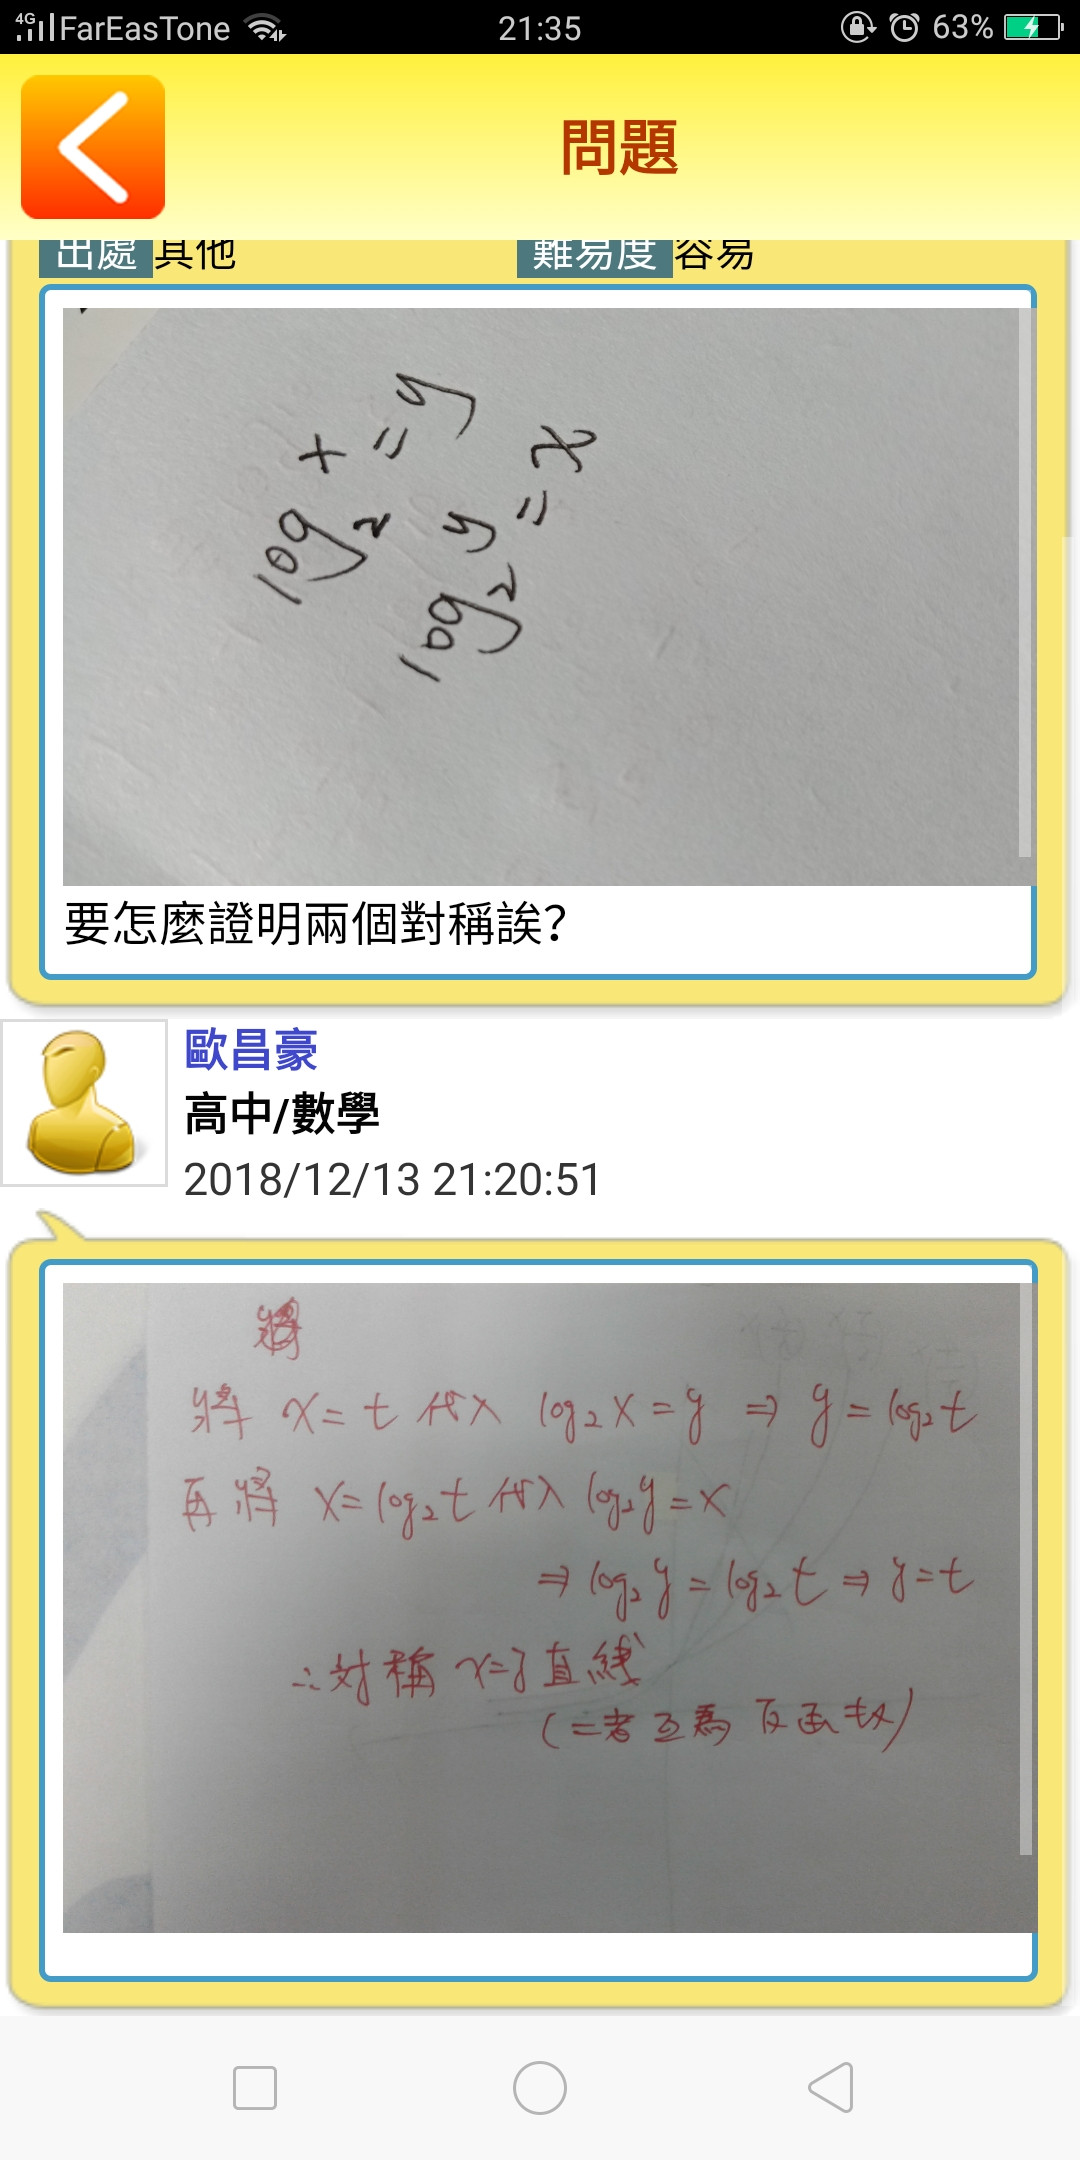 4G FarEastTone 21:35 63%
問題
出處 其他 難易度 容易
log₂x=y
log₂y=x
要怎麼證明兩個對稱誒?
歐昌豪
高中/數學
2018/12/13 21:20:51
將 x=t 代入 log₂x=y ⇒ y=log₂t
再將 x=log₂t 代入 log₂y=x
⇒ log₂y=log₂t ⇒ y=t
∴对稱 x=y 直線
(二者互為反函数)